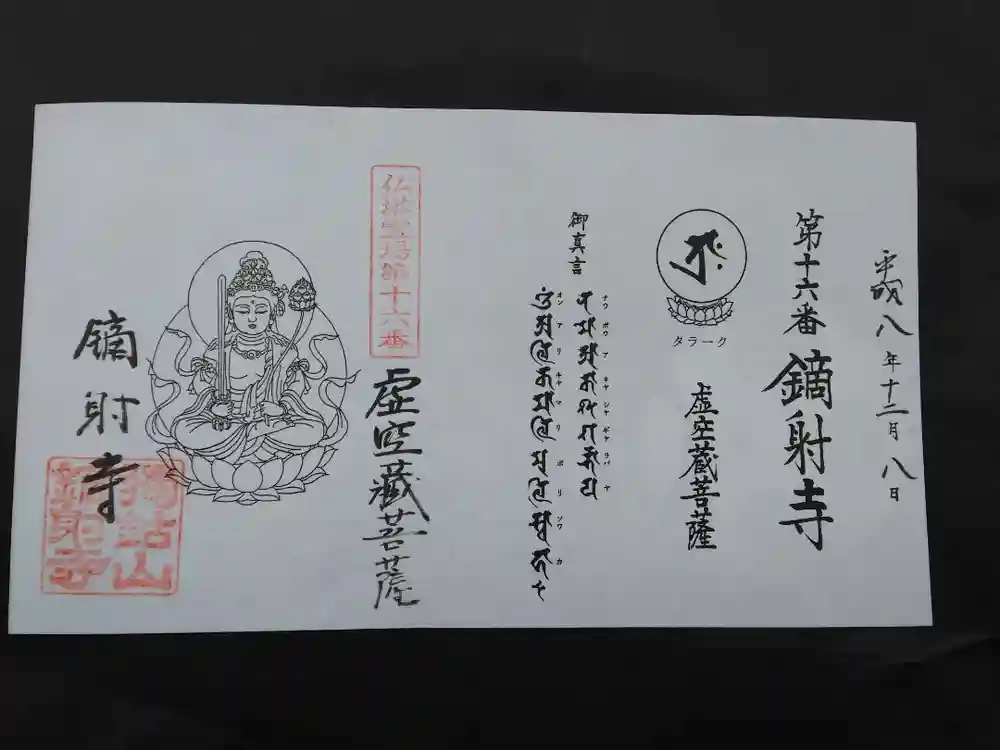 平成八年十二月八日
第十六番 鏑射寺
タラーク
虚空蔵菩薩
御真言
ナウ ボウ ア キャ シャ ギャ ラバ ヤ
オン ア リ キャ マ リ ボ リ ソワ カ
仏塔霊場第十六番
虚空藏菩薩
鏑射寺
鏑射寺